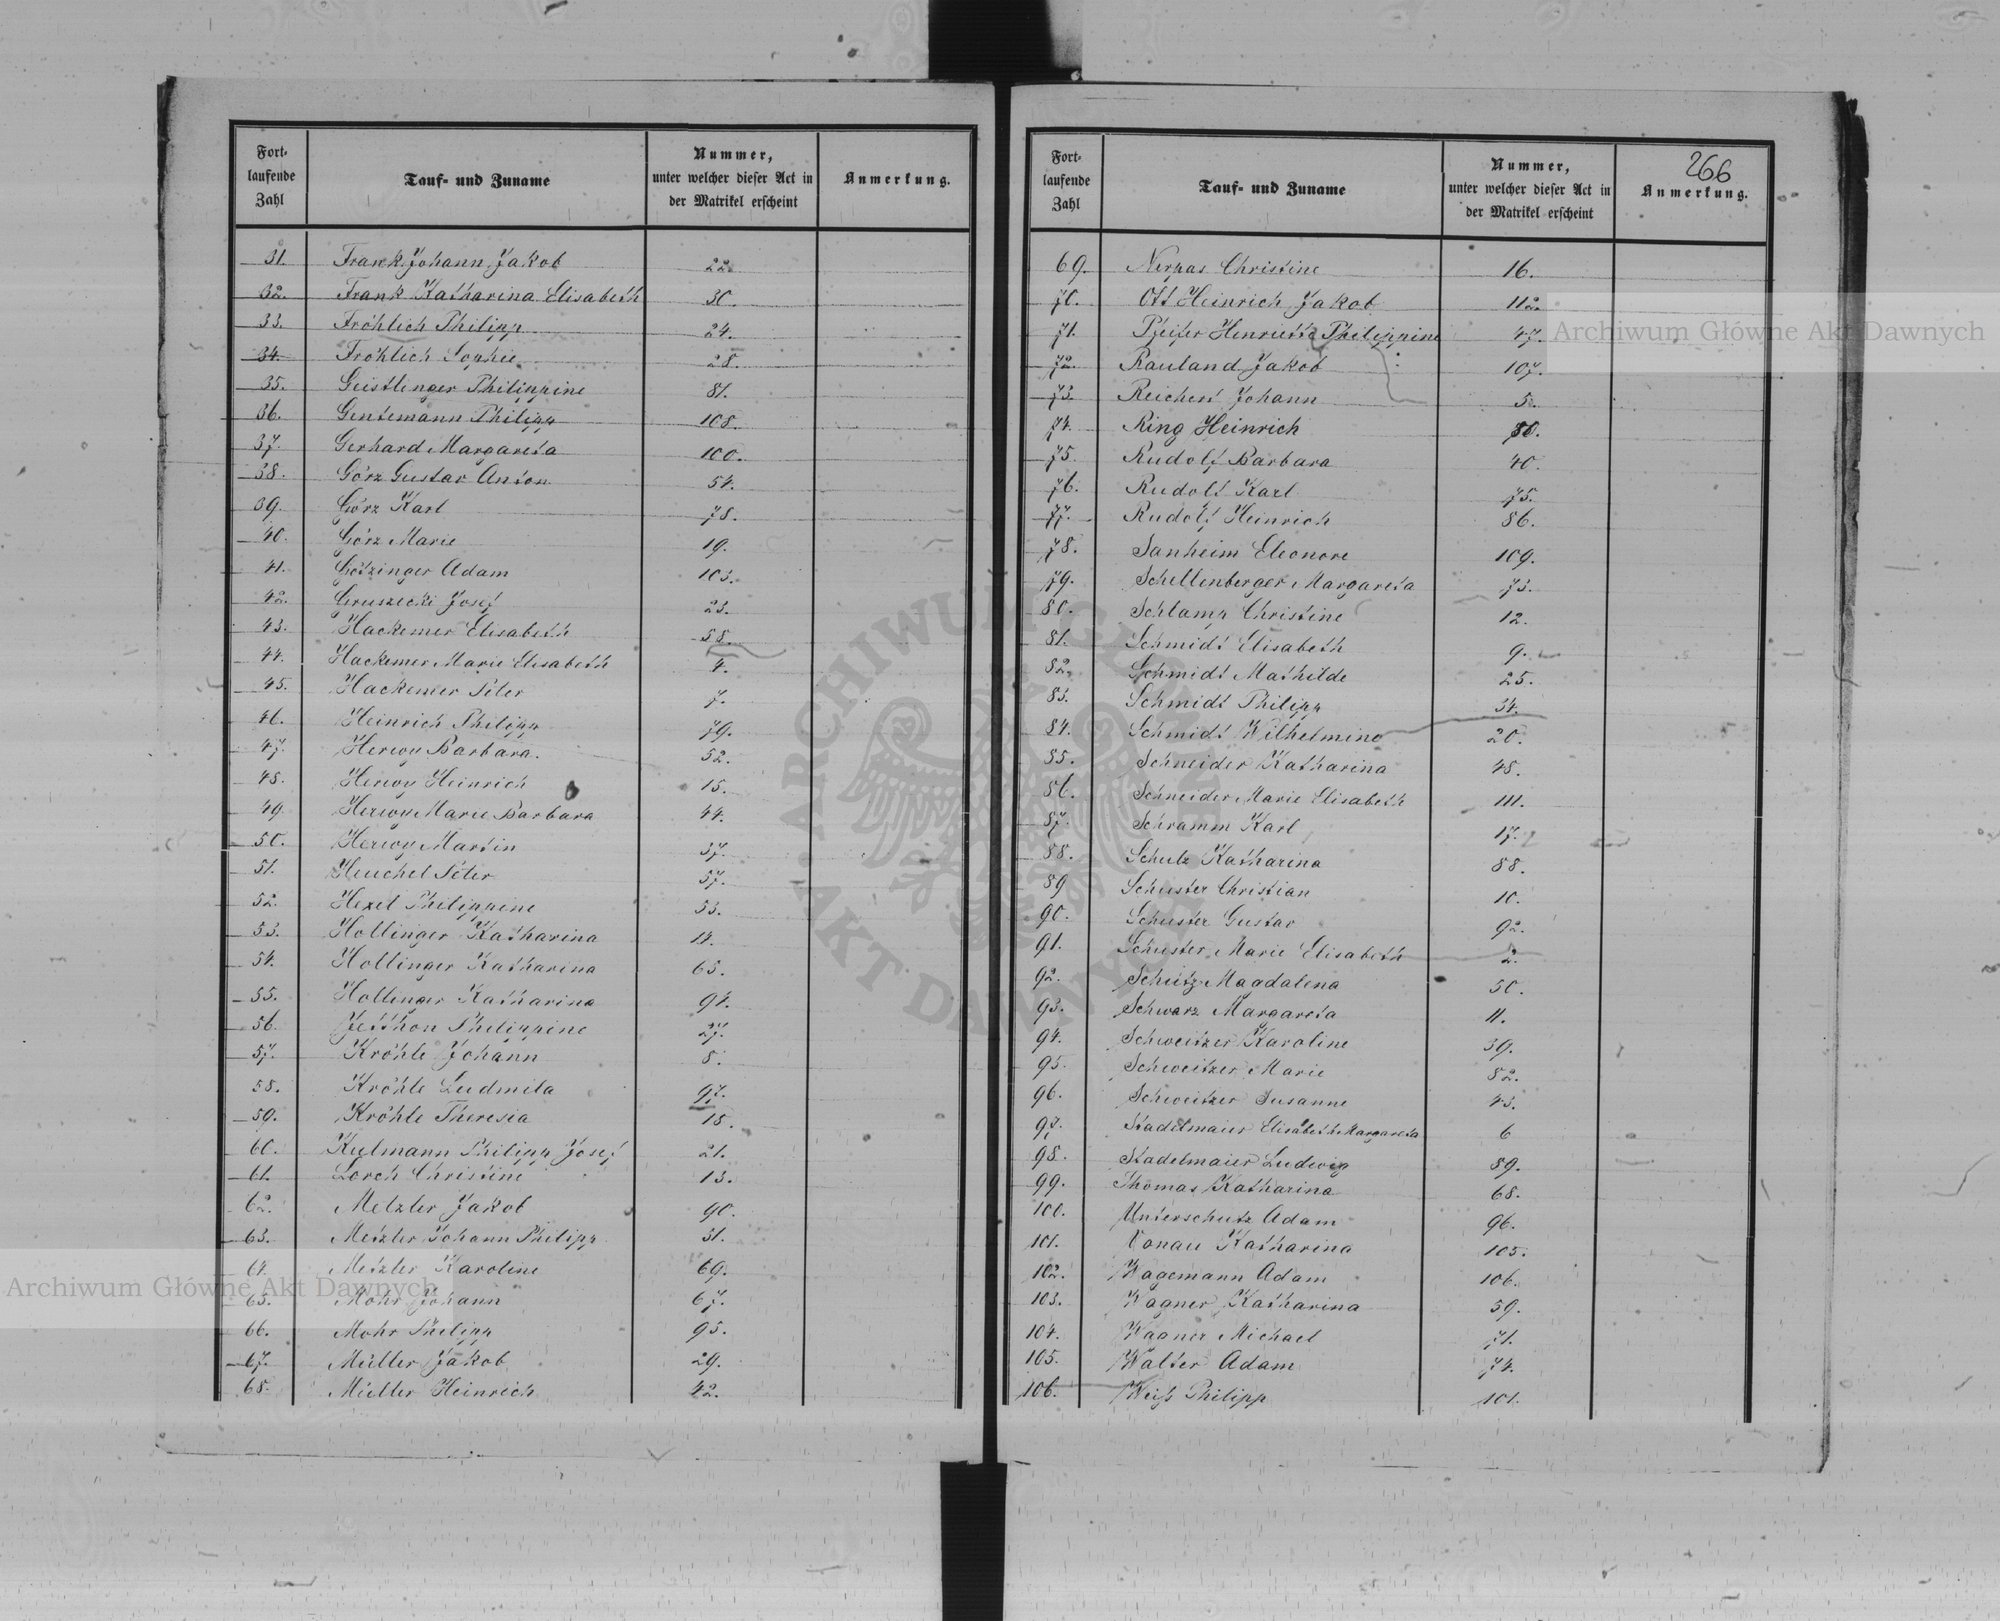 266
Fort-
laufende
Zahl
Tauf- und Zuname
Nummer,
unter welcher dieser Act in
der Matrikel erscheint
Anmerkung.
31. Frank Johann Jakob 22.
32. Frank Katharina Elisabeth 30.
33. Fröhlich Philipp 24.
34. Fröhlich Sophie 28.
35. Geistlinger Philippine 81.
36. Gentemann Philipp 108.
37. Gerhard Margareta 100.
38. Görz Gustav Anton 54.
39. Görz Karl 78.
40. Görz Marie 19.
41. Götzinger Adam 103.
42. Gruszecki Josef 23.
43. Hackemer Elisabeth 58.
44. Hackemer Marie Elisabeth 4.
45. Hackemer Peter 7.
46. Heinrich Philipp 79.
47. Herwy Barbara. 52.
48. Herwy Heinrich 15.
49. Herwy Marie Barbara 44.
50. Herwy Martin 37.
51. Heuchel Peter 57.
52. Hexel Philippine 53.
53. Hollinger Katharina 14.
54. Hollinger Katharina 65.
55. Hollinger Katharina 94.
56. Jetthon Philippine 27.
57. Kröhle Johann 8.
58. Kröhle Ludmila 97.
59. Kröhle Theresia 18.
60. Kulmann Philipp Josef 21.
61. Lorch Christine 13.
62. Metzler Jakob 90.
63. Metzler Johann Philipp 31.
64. Metzler Karoline 69.
65. Mohr Johann 67.
66. Mohr Philipp 95.
67. Müller Jakob 29.
68. Müller Heinrich 42.
Fort-
laufende
Zahl
Tauf- und Zuname
Nummer,
unter welcher dieser Act in
der Matrikel erscheint
Anmerkung.
69. Nerpas Christine 16.
70. Ott Heinrich Jakob 112.
71. Pfeifer Henriette Philippine 47.
72. Rauland Jakob 107.
73. Reichert Johann 5.
74. Ring Heinrich
75. Rudolf Barbara 40.
76. Rudolf Karl 75.
77. Rudolf Heinrich 86.
78. Sanheim Eleonore 109.
79. Schellenberger Margareta 73.
80. Schlamp Christine 12.
81. Schmidt Elisabeth 9.
82. Schmidt Mathilde 25.
83. Schmidt Philipp 34.
84. Schmidt Wilhelmine 20.
85. Schneider Katharina 48.
86. Schneider Marie Elisabeth 111.
87. Schramm Karl 17.
88. Schulz Katharina 88.
89 Schuster Christian 10.
90. Schuster Gustav 92.
91. Schuster Marie Elisabeth 2.
92. Schütz Magdalena 50.
93. Schwarz Margareta 11.
94. Schweitzer Karoline 39.
95. Schweitzer Marie 82.
96. Schweitzer Susanne 43.
97. Stadelmaier Elisabeth Margareta 6
98. Stadelmaier Ludwig 89.
99. Thomas Katharina 68.
100. Unterschutz Adam 96.
101. Vonau Katharina 105.
102. Wagemann Adam 106.
103. Wagner Katharina 59.
104. Wagner Michael 71.
105. Walter Adam 74.
106. Weiß Philipp 101.
Archiwum Główne Akt Dawnych
Archiwum Główne Akt Dawnych
ARCHIWUM GŁÓWNE
AKT DAWNYCH